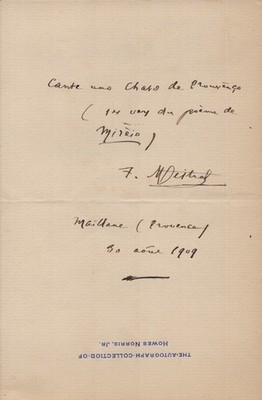 Cante uno chato de Prouvènço
( 1er vers du poème de
Mirèio )
F. Mistral
Maillane ( Provence )
30 août 1909
THE-AUTOGRAPH-COLLECTION-OF
HOWES NORRIS, JR.